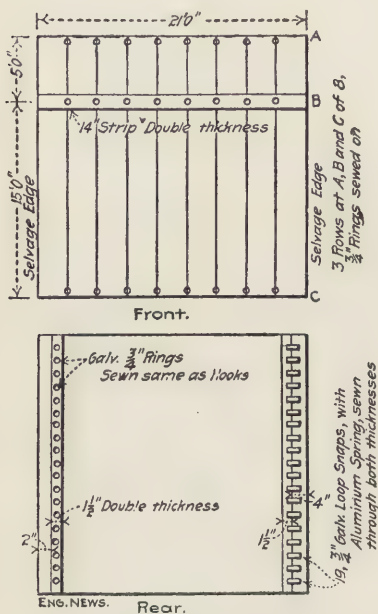 21'0"
A
5'0"
B
14" Strip Double thickness
15'0"
Selvage Edge
Selvage Edge
3 Rows at A, B and C of 8,
3/4" Rings sewed on
C
Front.
Galv. 3/4" Rings
Sewn same as Hooks
1 1/2" Double thickness
2"
4"
1 1/2"
19, 3/4" Galv. Loop Snaps, with
Aluminum Spring, sewn
through both thicknesses
ENG. NEWS.
Rear.